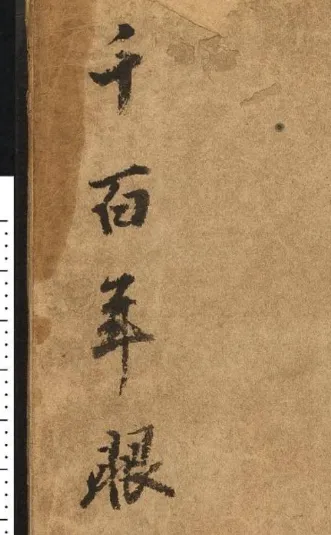 千百年眼